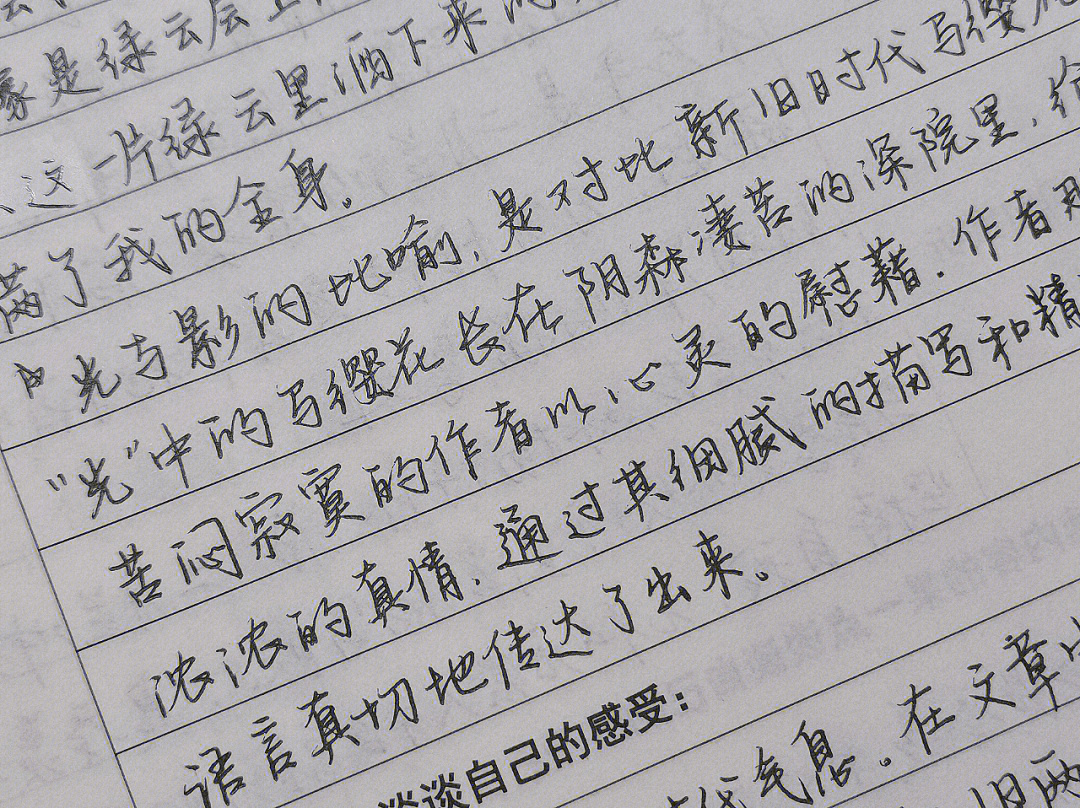 象是绿云层上
这一片绿云里洒下来的
满了我的全身。
中光与影的比喻,是对比新旧时代马缨花
“光”中的马缨花长在阴森凄苦的深院里,给
苦闷寂寞的作者以心灵的慰藉.作者
浓浓的真情,通过其细腻的描写和精
语言真切地传达了出来。
谈谈自己的感受:
代气息。在文章中
旧两